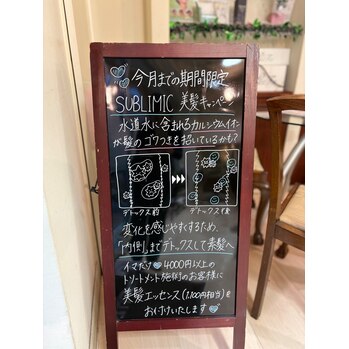 今月までの期間限定
SUBLIMIC 美髪キャンペーン
水道水に含まれるカルシウムイオン
が髪のゴワつきを招いているかも?
デトックス前
デトックス後
変化を感じやすくするため、
「内側」までデトックスして素髪へ
イマだけ 4000円以上の
トリートメント施術のお客様に
美髪エッセンス(1,100円相当)を
お付けいたします